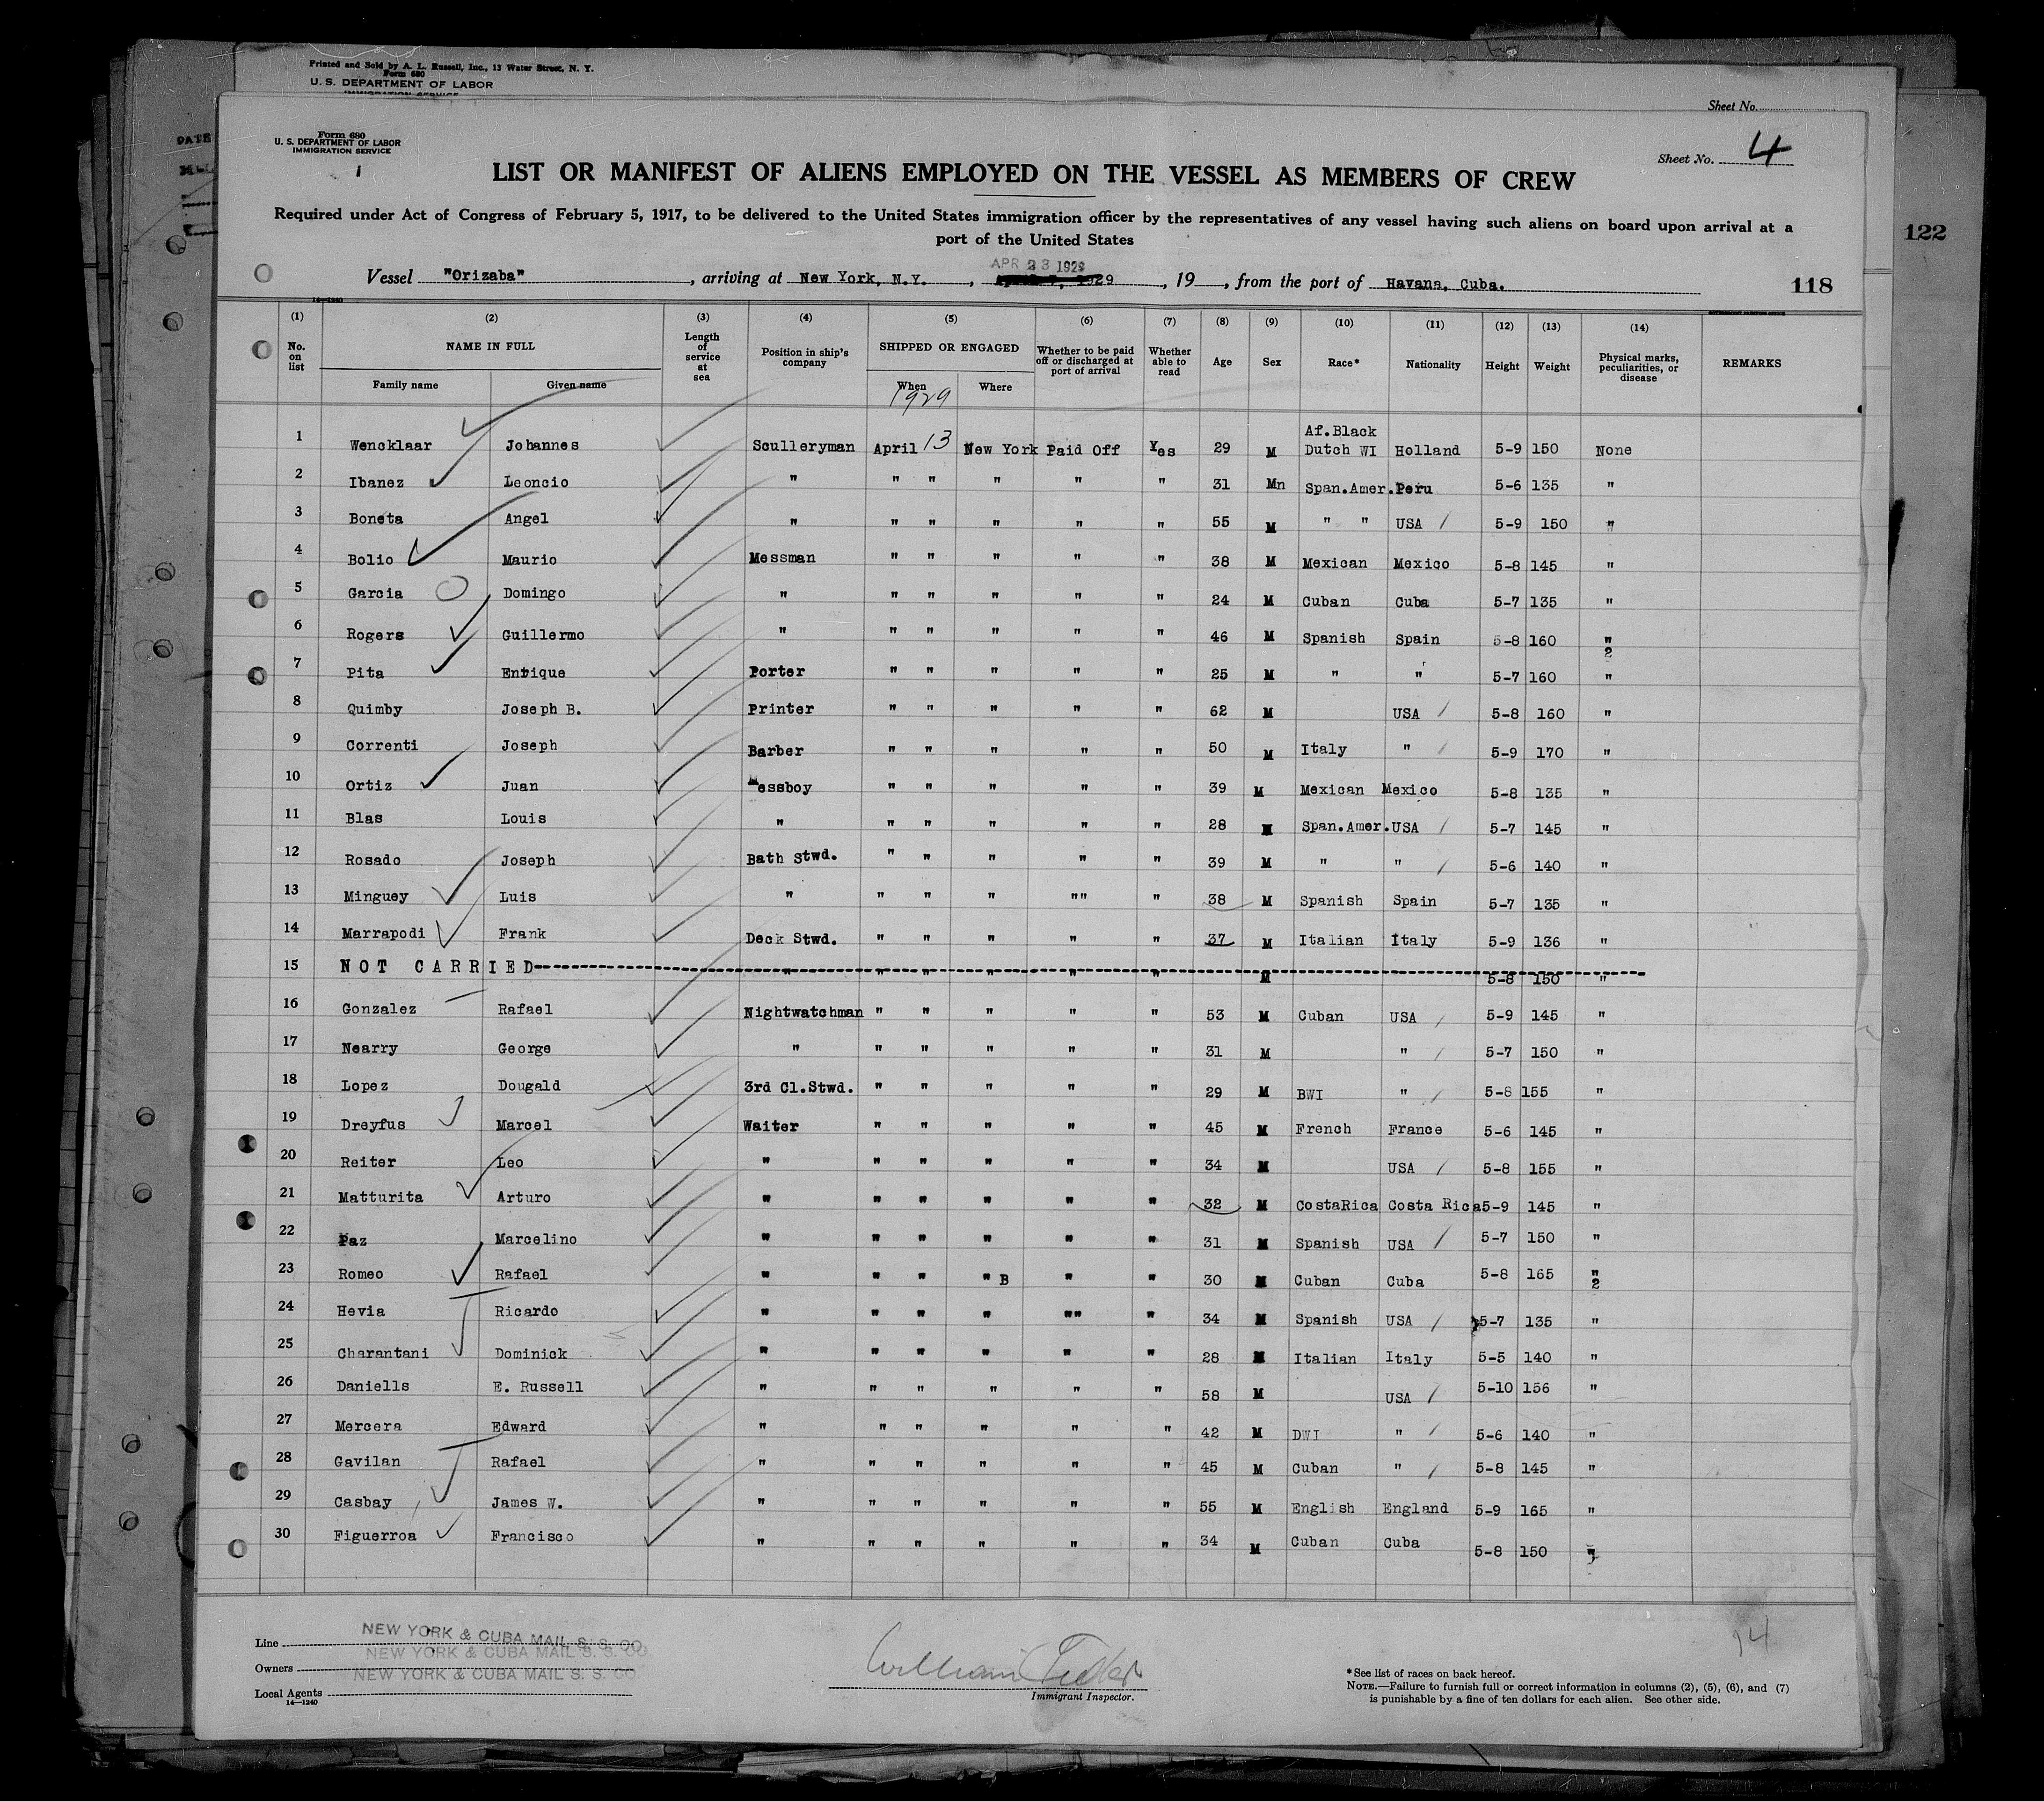 Printed and Sold by A. L. Russell, Inc., 13 Water Street, N. Y.
Form 680
U. S. DEPARTMENT OF LABOR
IMMIGRATION SERVICE
Sheet No.
DATE
Form 680
U. S. DEPARTMENT OF LABOR
IMMIGRATION SERVICE
1
Sheet No. 4
LIST OR MANIFEST OF ALIENS EMPLOYED ON THE VESSEL AS MEMBERS OF CREW
Required under Act of Congress of February 5, 1917, to be delivered to the United States immigration officer by the representatives of any vessel having such aliens on board upon arrival at a
port of the United States
122
APR 23 1929
Vessel "Orizaba", arriving at New York, N.Y., 1929, 19, from the port of Havana, Cuba.
118
14-1240
(1) (2) (3) (4) (5) (6) (7) (8) (9) (10) (11) (12) (13) (14)
No. on list NAME IN FULL Length of service at sea Position in ship's company SHIPPED OR ENGAGED Whether to be paid off or discharged at port of arrival Whether able to read Age Sex Race* Nationality Height Weight Physical marks, peculiarities, or disease REMARKS
Family name Given name When Where
1929
1 Wencklaar Johannes Sculleryman April 13 New York Paid Off Yes 29 M Af.Black Dutch WI Holland 5-9 150 None
2 Ibanez Leoncio " " " " " " 31 Mn Span.Amer. Peru 5-6 135 "
3 Boneta Angel " " " " " " 55 M " " USA 5-9 150 "
4 Bolio Maurio Messman " " " " " 38 M Mexican Mexico 5-8 145 "
5 Garcia Domingo " " " " " " 24 M Cuban Cuba 5-7 135 "
6 Rogers Guillermo " " " " " " 46 M Spanish Spain 5-8 160 "
2
7 Pita Enrique Porter " " " " " 25 M " " 5-7 160 "
8 Quimby Joseph B. Printer " " " " " 62 M USA 5-8 160 "
9 Correnti Joseph Barber " " " " " 50 M Italy " 5-9 170 "
10 Ortiz Juan Messboy " " " " " 39 M Mexican Mexico 5-8 135 "
11 Blas Louis " " " " " " 28 M Span.Amer. USA 5-7 145 "
12 Rosado Joseph Bath Stwd. " " " " " 39 M " " 5-6 140 "
13 Minguey Luis " " " " "" " 38 M Spanish Spain 5-7 135 "
14 Marrapodi Frank Deck Stwd. " " " " " 37 M Italian Italy 5-9 136 "
15 NOT CARRIED " " " " " " M 5-8 150 "
16 Gonzalez Rafael Nightwatchman " " " " " 53 M Cuban USA 5-9 145 "
17 Nearry George " " " " " " 31 M " 5-7 150 "
18 Lopez Dougald 3rd Cl.Stwd. " " " " " 29 M BWI " 5-8 155 "
19 Dreyfus Marcel Waiter " " " " " 45 M French France 5-6 145 "
20 Reiter Leo " " " " " " 34 M USA 5-8 155 "
21 Matturita Arturo " " " " " " 32 M CostaRica Costa Rica 5-9 145 "
22 Paz Marcelino " " " " " " 31 M Spanish USA 5-7 150 "
23 Romeo Rafael " " " " B " " 30 M Cuban Cuba 5-8 165 "
2
24 Hevia Ricardo " " " " "" " 34 M Spanish USA 5-7 135 "
25 Charantani Dominick " " " " " " 28 M Italian Italy 5-5 140 "
26 Daniells E. Russell " " " " " " 58 M USA 5-10 156 "
27 Mercera Edward " " " " " " 42 M DWI " 5-6 140 "
28 Gavilan Rafael " " " " " " 45 M Cuban " 5-8 145 "
29 Casbay James W. " " " " " " 55 M English England 5-9 165 "
30 Figuerroa Francisco " " " " " " 34 M Cuban Cuba 5-8 150 "
14
Line NEW YORK & CUBA MAIL S. S. CO.
Owners NEW YORK & CUBA MAIL S. S. CO.
Local Agents NEW YORK & CUBA MAIL S. S. CO.
14-1240
William
Immigrant Inspector.
*See list of races on back hereof.
NOTE.—Failure to furnish full or correct information in columns (2), (5), (6), and (7)
is punishable by a fine of ten dollars for each alien. See other side.